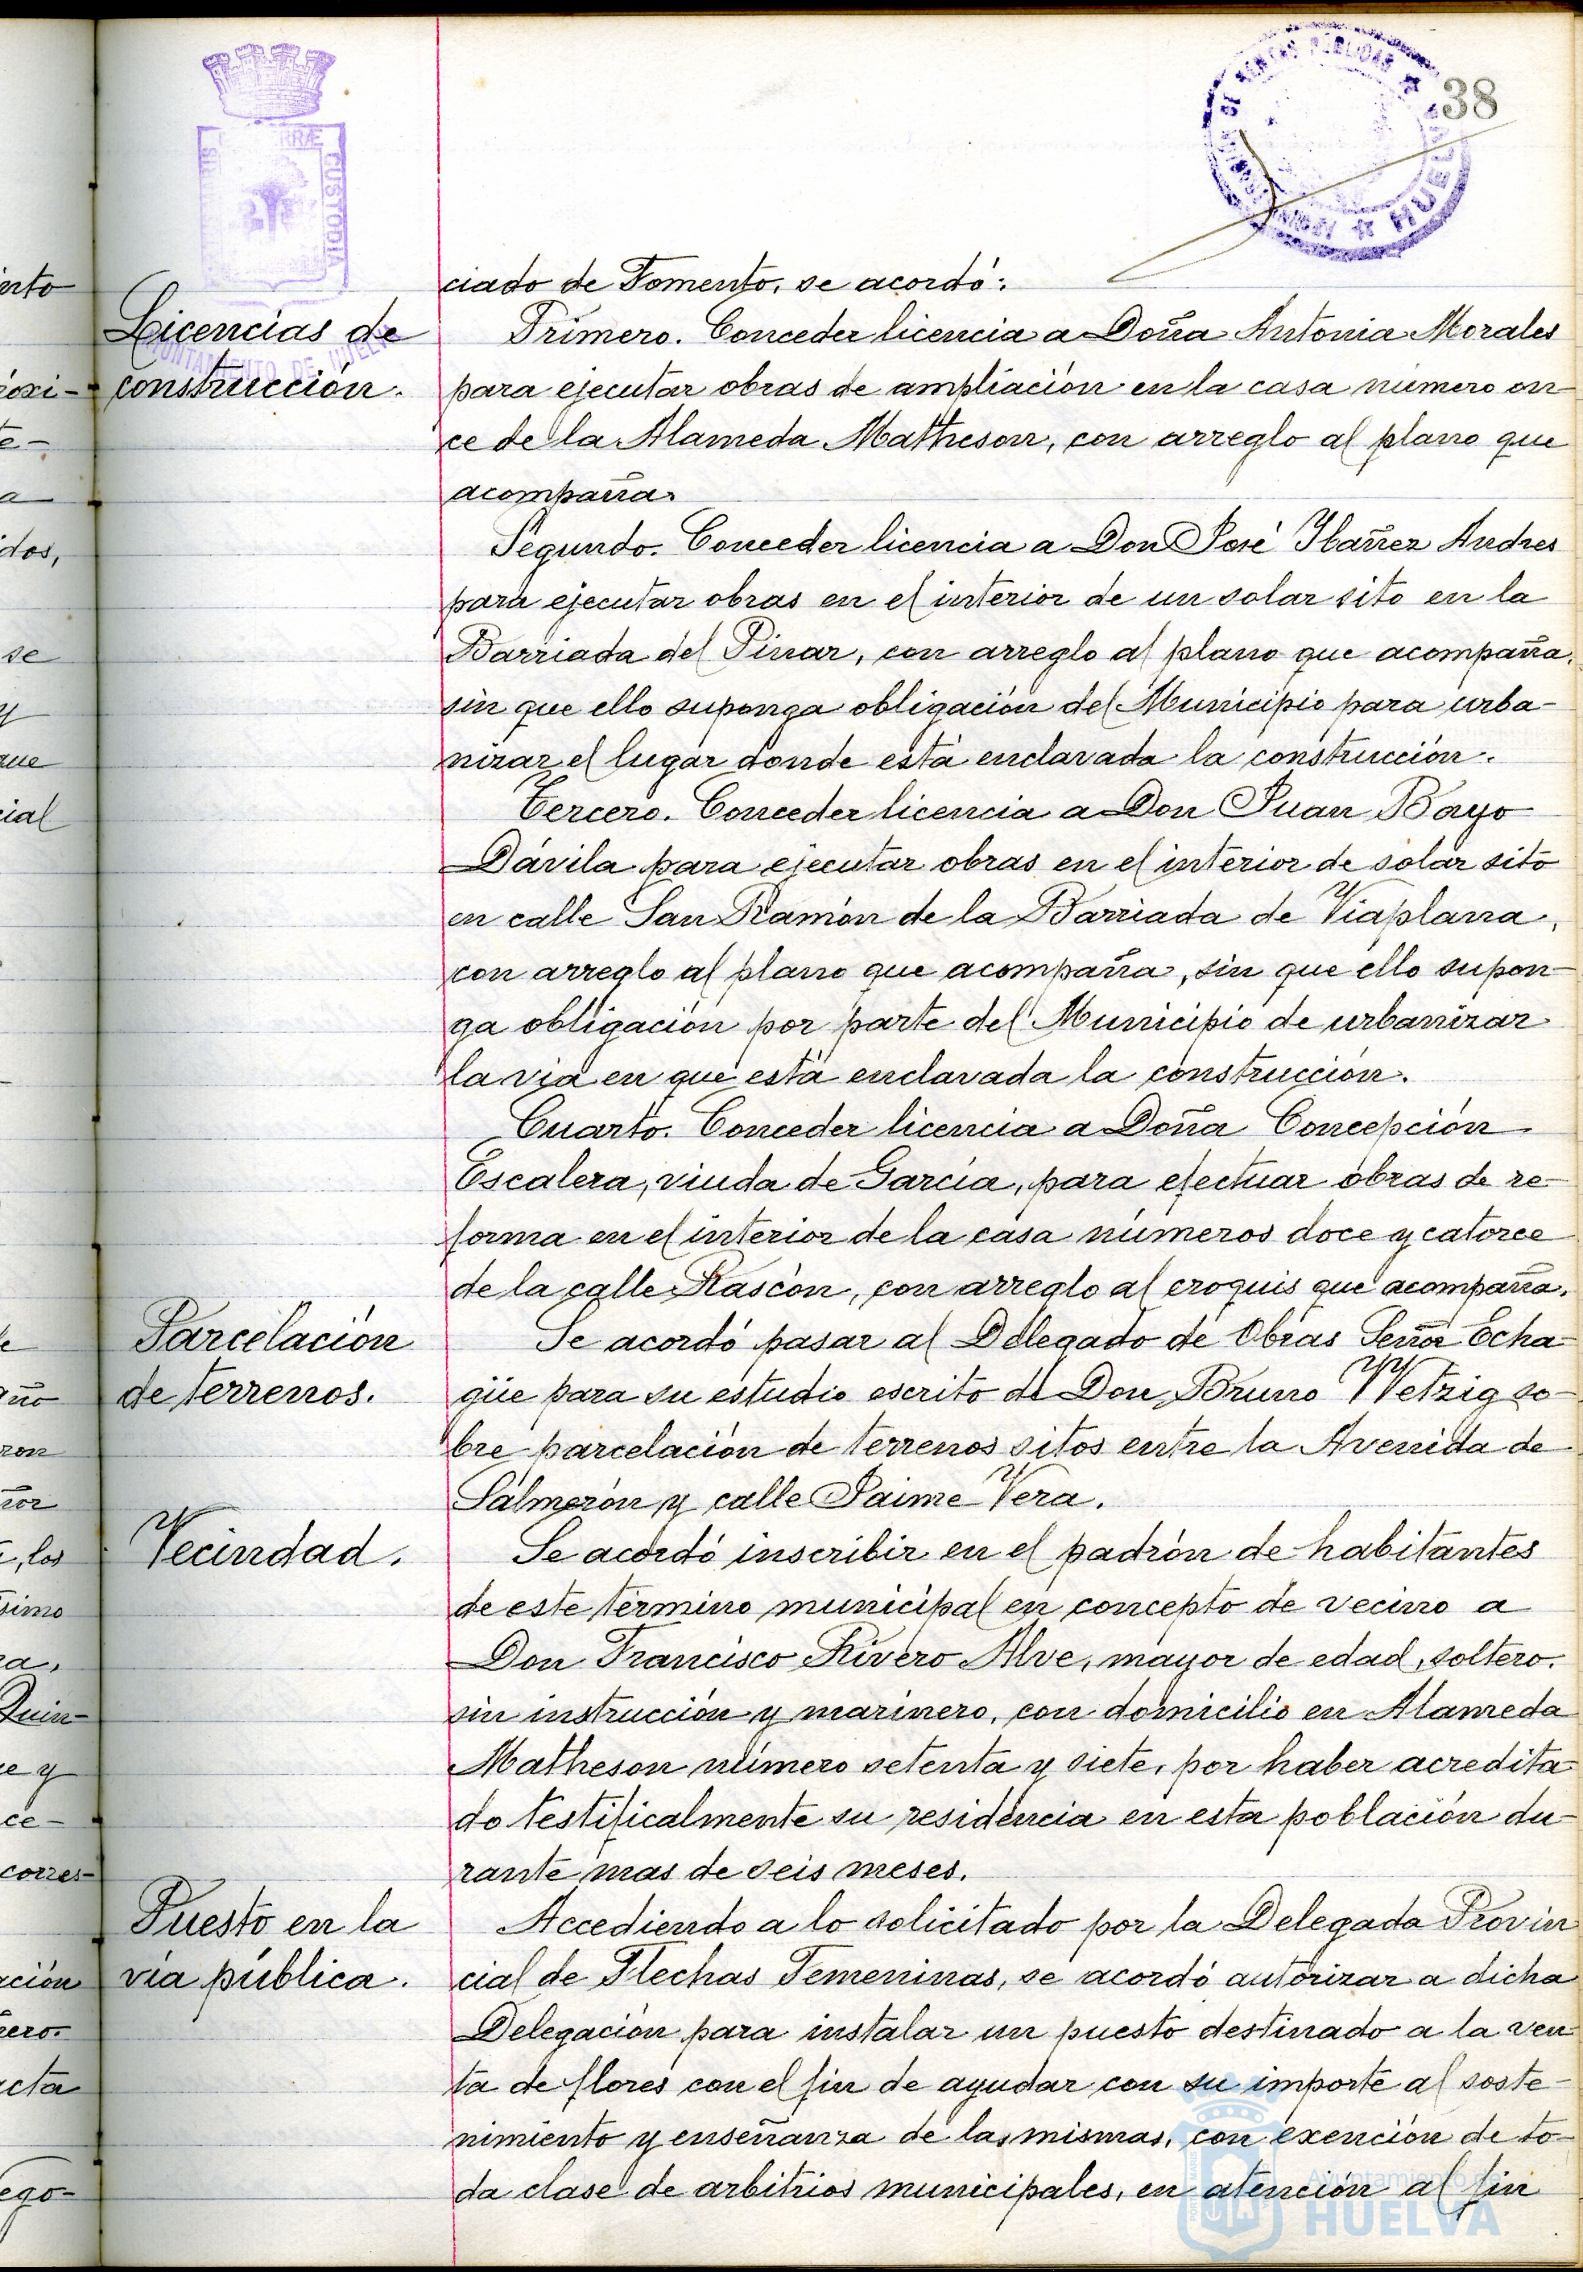 38
ciado de Fomento, se acordó:
Licencias de
construcción.
Primero. Conceder licencia a Doña Antonia Morales
para ejecutar obras de ampliación en la casa número on-
ce de la Alameda Matheson, con arreglo al plano que
acompaña.
Segundo. Conceder licencia a Don José Ibañez Andres
para ejecutar obras en el interior de un solar sito en la
Barriada del Pinar, con arreglo al plano que acompaña,
sin que ello suponga obligación del Municipio para urba-
nizar el lugar donde está enclavada la construcción.
Tercero. Conceder licencia a Don Juan Bayo
Dávila para ejecutar obras en el interior de solar sito
en calle San Ramón de la Barriada de Viaplana,
con arreglo al plano que acompaña, sin que ello supon-
ga obligación por parte del Municipio de urbanizar
la via en que está enclavada la construcción.
Cuarto. Conceder licencia a Doña Concepción
Escalera, viuda de García, para efectuar obras de re-
forma en el interior de la casa números doce y catorce
de la calle Rascón, con arreglo al croquis que acompaña.
Parcelación
de terrenos.
Se acordó pasar al Delegado de Obras Señor Echa-
güe para su estudio escrito de Don Bruno Wetzig so-
bre parcelación de terrenos sitos entre la Avenida de
Salmerón y calle Jaime Vera.
Vecindad.
Se acordó inscribir en el padrón de habitantes
de este término municipal en concepto de vecino a
Don Francisco Rivero Alve, mayor de edad, soltero,
sin instrucción y marinero, con domicilio en Alameda
Matheson número setenta y siete, por haber acredita-
do testificalmente su residencia en esta población du-
rante mas de seis meses.
Puesto en la
via pública.
Accediendo a lo solicitado por la Delegada Provin
cial de Flechas Femeninas, se acordó autorizar a dicha
Delegación para instalar un puesto destinado a la ven-
ta de flores con el fin de ayudar con su importe al soste-
nimiento y enseñanza de las mismas, con exención de to-
da clase de arbitrios municipales, en atención al fin
Ayuntamiento de
HUELVA